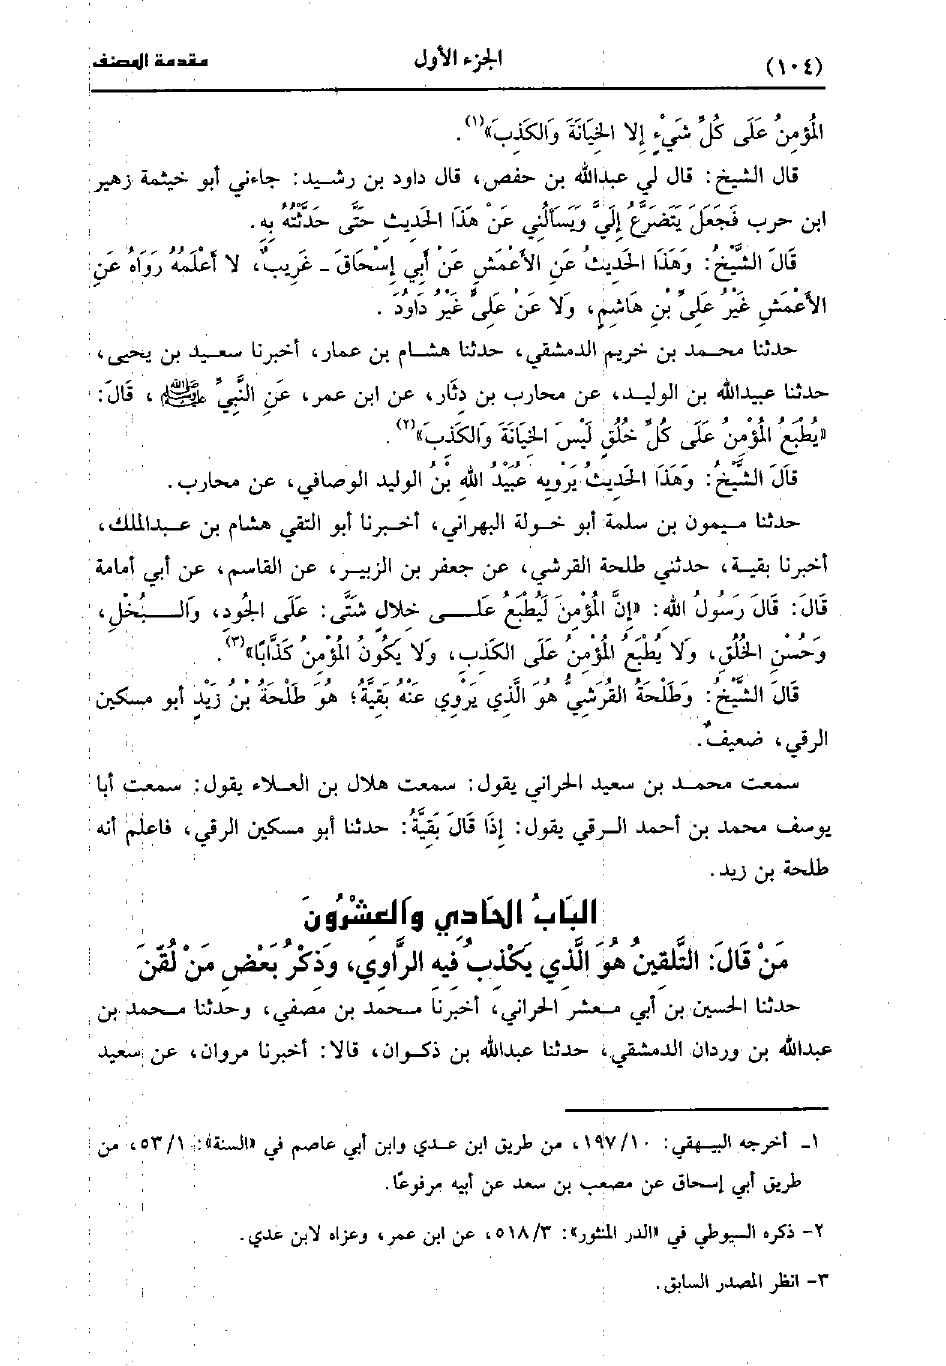 (١٠٤) الجزء الأول مقدمة المصنف
المُؤمِنُ عَلَى كُلِّ شَيْءٍ إِلا الخِيَانَةَ وَالكَذِبَ»(١).
قال الشيخ: قال لي عبدالله بن حفص، قال داود بن رشيد: جاءني أبو خيثمة زهير
ابن حرب فَجَعَلَ يَتَضَرَّعُ إِلَيَّ وَيَسَألُنِي عَنْ هَذَا الحَدِيثِ حَتَّى حَدَّثْتُهُ بِهِ.
قَالَ الشَّيْخُ: وَهَذَا الحَدِيثُ عَنِ الأَعْمَشِ عَنْ أَبِي إِسْحَاقَ ـ غَرِيبٌ، لا أَعْلَمُهُ رَوَاهُ عَنِ
الأَعْمَشِ غَيْرُ عَلِيِّ بْنِ هَاشِمٍ، وَلَا عَنْ عَلِيٍّ غَيْرُ دَاوُدَ .
حدثنا محمد بن خريم الدمشقي، حدثنا هشام بن عمار، أخبرنا سعيد بن يحيى،
حدثنا عبيدالله بن الوليد، عن محارب بن دِثَار، عن ابن عمر، عَنِ النَّبِيِّ ﷺ، قَالَ:
«يُطْبَعُ المُؤْمِنُ عَلَى كُلِّ خُلُقٍ لَيْسَ الخِيَانَةَ وَالكَذِبَ»(٢).
قَالَ الشَّيْخُ: وَهَذَا الحَدِيثُ يَرْوِيه عُبَيْدُ اللهِ بْنُ الوليد الوصافي، عن محارب.
حدثنا ميمون بن سلمة أبو خولة البهراني، أخبرنا أبو التقي هشام بن عبدالملك،
أخبرنا بقية، حدثني طلحة القرشي، عن جعفر بن الزبير، عن القاسم، عن أبي أمامة
قَالَ: قَالَ رَسُولُ اللهِ: «إِنَّ المُؤْمِنَ لَيُطْبَعُ عَلَى خلالٍ شَتَّى: عَلَى الجُودِ، وَالبُخْلِ،
وَحُسْنِ الخُلُقِ، وَلَا يُطْبَعُ المُؤْمِنُ عَلَى الكَذِبِ، وَلَا يَكُونُ المُؤْمِنُ كَذَّابًا»(٣).
قَالَ الشَّيْخُ: وَطَلْحَةُ القُرَشِيُّ هُوَ الَّذِي يَرْوِي عَنْهُ بَقِيَّةُ؛ هُوَ طَلْحَةُ بْنُ زَيْدٍ أبو مسكين
الرقي، ضعيفٌ.
سمعت محمد بن سعيد الحراني يقول: سمعت هلال بن العلاء يقول: سمعت أبا
يوسف محمد بن أحمد الرقي يقول: إِذَا قَالَ بَقِيَّةُ: حدثنا أبو مسكين الرقي، فاعلم أنه
طلحة بن زيد.
البَابُ الحَادِي وَالعِشْرُونَ
مَنْ قَالَ: التَّلْقِينُ هُوَ الَّذِي يَكْذِبُ فِيهِ الرَّاوِي، وَذِكْرُ بَعْضِ مَنْ لُقِّنَ
حدثنا الحسين بن أبي معشر الحراني، أخبرنا محمد بن مصفي، وحدثنا محمد بن
عبدالله بن وردان الدمشقي، حدثنا عبدالله بن ذكوان، قالا: أخبرنا مروان، عن سعيد
١ـ أخرجه البيهقي: ١٠/١٩٧، من طريق ابن عدي وابن أبي عاصم في «السنة»: ١/٥٣، من
طريق أبي إسحاق عن مصعب بن سعد عن أبيه مرفوعًا.
٢- ذكره السيوطي في «الدر المنثور»: ٣/٥١٨، عن ابن عمر، وعزاه لابن عدي.
٣- انظر المصدر السابق.